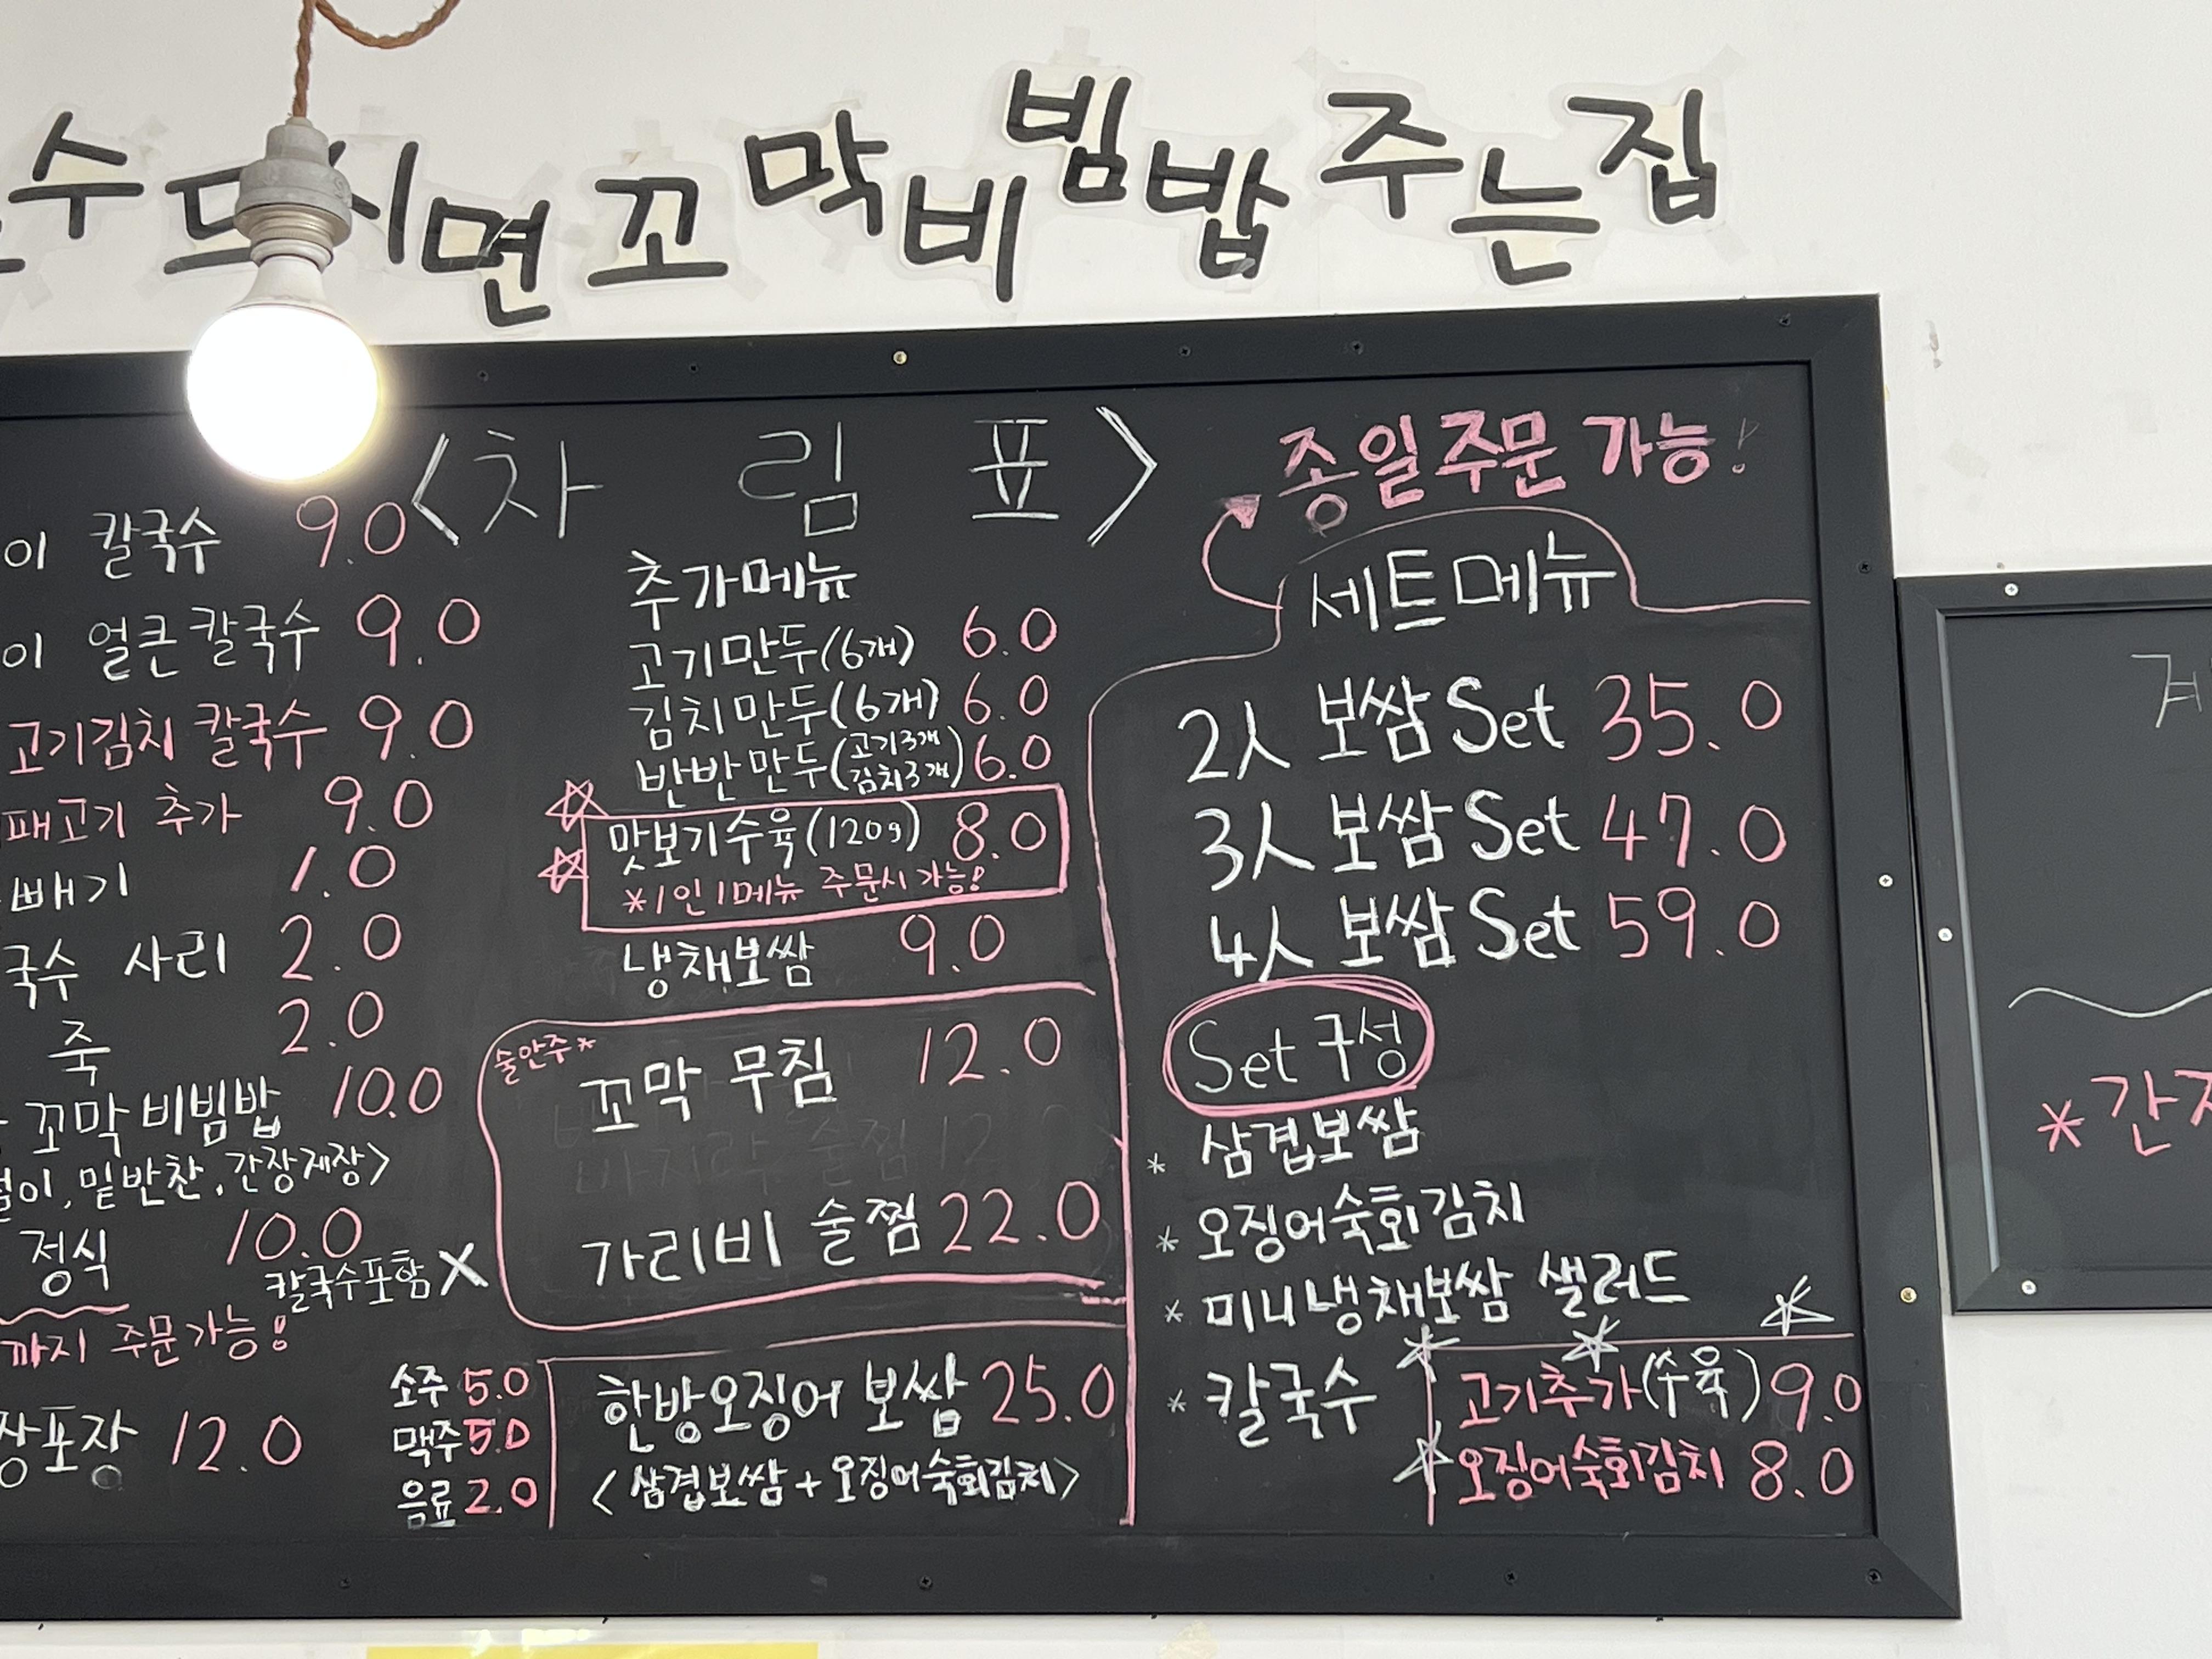 수 드시면 꼬막비빔밥 주는집
<차림표>
이 칼국수 9.0
이 얼큰칼국수 9.0
고기김치 칼국수 9.0
패고기 추가 9.0
빼기 1.0
국수 사리 2.0
죽 2.0
꼬막비빔밥 10.0
밑반찬, 간장게장>
정식 10.0
칼국수포함 X
까지 주문가능!
장포장 12.0
소주 5.0
맥주 5.0
음료 2.0
추가메뉴
고기만두(6개) 6.0
김치만두(6개) 6.0
반반만두(고기3개 김치3개) 6.0
맛보기수육(120g) 8.0
*1인 1메뉴 주문시 가능!
냉채보쌈 9.0
술안주*
꼬막 무침 12.0
가리비 술찜 22.0
한방오징어 보쌈 25.0
<삼겹보쌈+오징어숙회김치>
종일주문 가능!
세트메뉴
2人 보쌈 Set 35.0
3人 보쌈 Set 47.0
4人 보쌈 Set 59.0
Set 구성
* 삼겹보쌈
* 오징어숙회김치
* 미니냉채보쌈 샐러드
* 칼국수
고기추가(수육) 9.0
오징어숙회김치 8.0